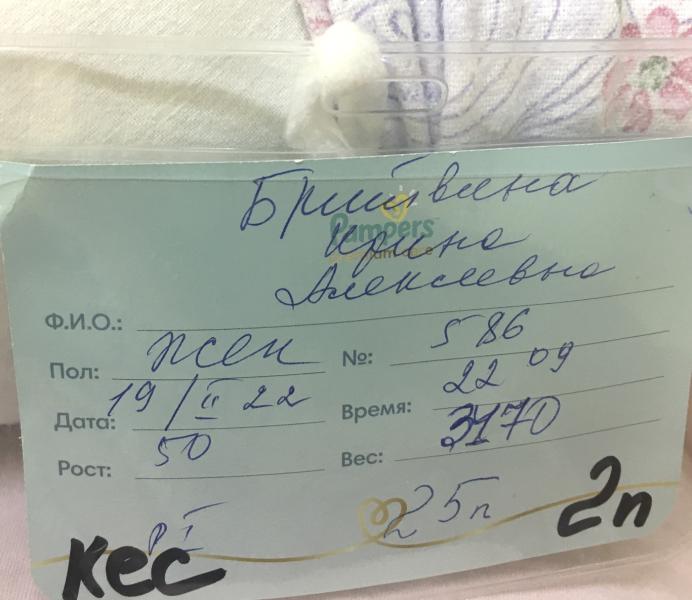 Бритвина
Pampers
Ирина
Алексеевна
Ф.И.О.:
Пол: жен №: 586
Дата: 19/II 22 Время: 22 09
Рост: 50 Вес: 3170
р I 25п 2п
Кес